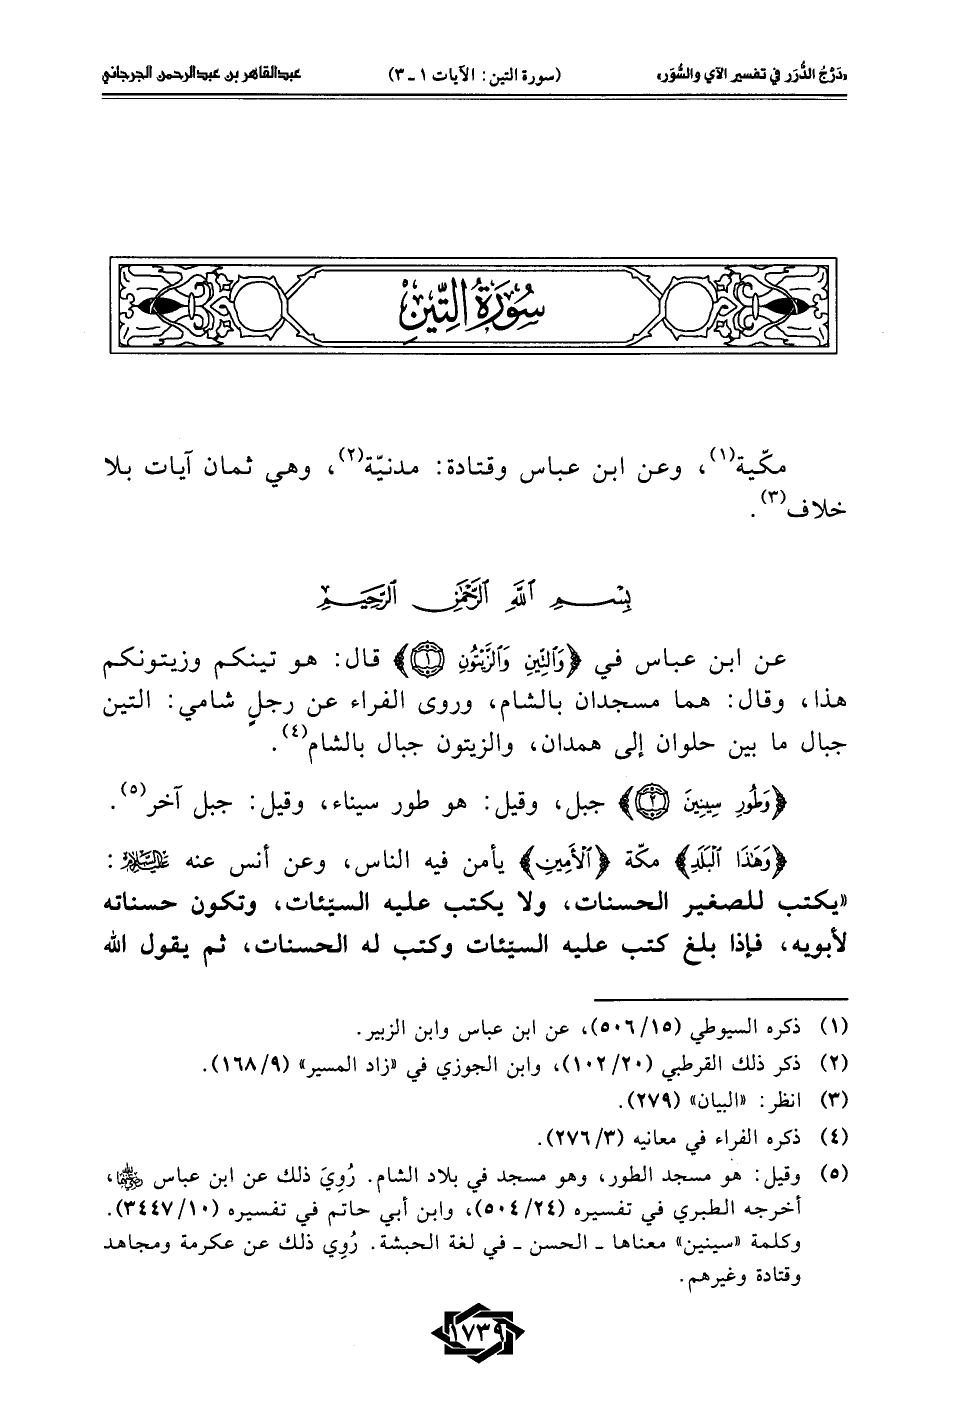 «دَرْجُ الدُّرَر في تفسير الآي والسُّوَر» (سورة التين: الآيات ١ - ٣) عبدالقاهر بن عبدالرحمن الجرجاني
سُورَةُ التِّينِ
مكّية(١)، وعن ابن عباس وقتادة: مدنيّة(٢)، وهي ثمان آيات بلا
خلاف(٣).
بِسْمِ ٱللَّهِ ٱلرَّحْمَٰنِ ٱلرَّحِيمِ
عن ابن عباس في ﴿وَٱلتِّينِ وَٱلزَّيْتُونِ ١﴾ قال: هو تينكم وزيتونكم
هذا، وقال: هما مسجدان بالشام، وروى الفراء عن رجلٍ شامي: التين
جبال ما بين حلوان إلى همدان، والزيتون جبال بالشام(٤).
﴿وَطُورِ سِينِينَ ٢﴾ جبل، وقيل: هو طور سيناء، وقيل: جبل آخر(٥).
﴿وَهَٰذَا ٱلْبَلَدِ﴾ مكّة ﴿ٱلْأَمِينِ﴾ يأمن فيه الناس، وعن أنس عنه عليه السلام:
«يكتب للصغير الحسنات، ولا يكتب عليه السيّئات، وتكون حسناته
لأبويه، فإذا بلغ كتب عليه السيّئات وكتب له الحسنات، ثم يقول الله
(١) ذكره السيوطي (٥٠٦/١٥)، عن ابن عباس وابن الزبير.
(٢) ذكر ذلك القرطبي (١٠٢/٢٠)، وابن الجوزي في «زاد المسير» (١٦٨/٩).
(٣) انظر: «البيان» (٢٧٩).
(٤) ذكره الفراء في معانيه (٢٧٦/٣).
(٥) وقيل: هو مسجد الطور، وهو مسجد في بلاد الشام. رُوِيَ ذلك عن ابن عباس رضي الله عنهما،
أخرجه الطبري في تفسيره (٥٠٤/٢٤)، وابن أبي حاتم في تفسيره (٣٤٤٧/١٠).
وكلمة «سينين» معناها - الحسن - في لغة الحبشة. رُوِي ذلك عن عكرمة ومجاهد
وقتادة وغيرهم.
١٧٣٩